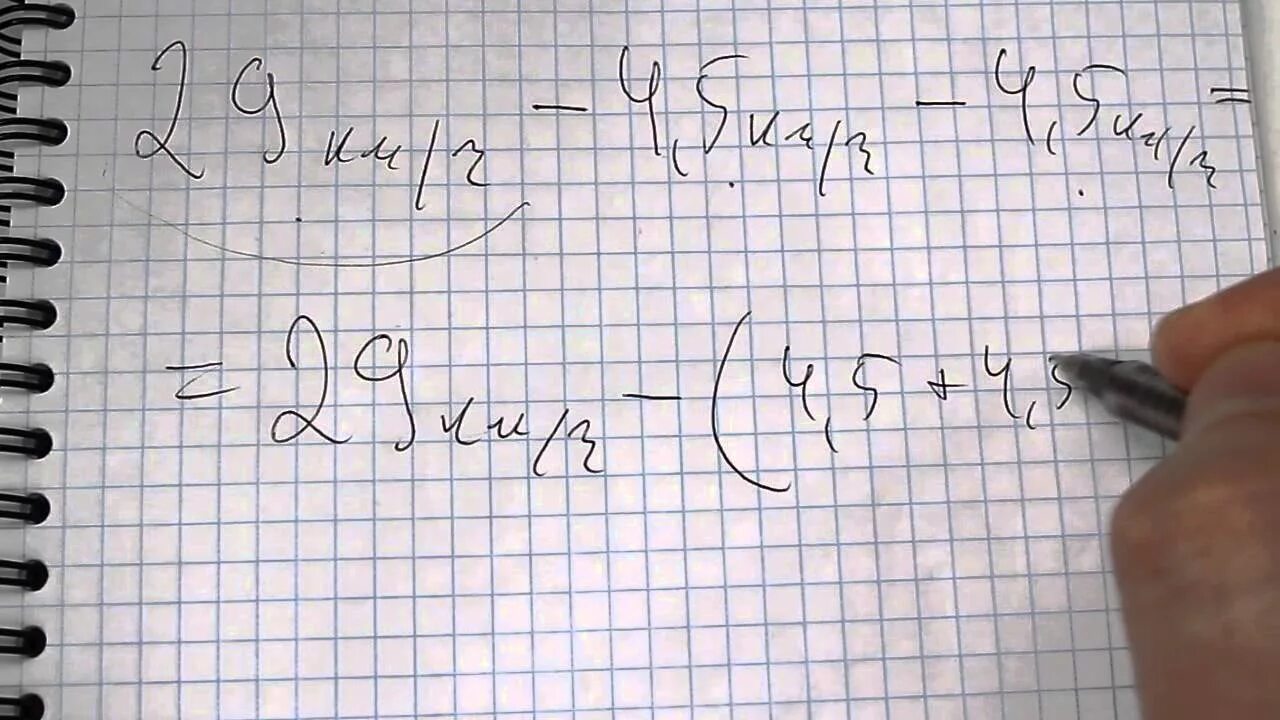 29 км/ч - 4,5 км/ч - 4,5 км/ч =
= 29 км/ч - (4,5 + 4,5